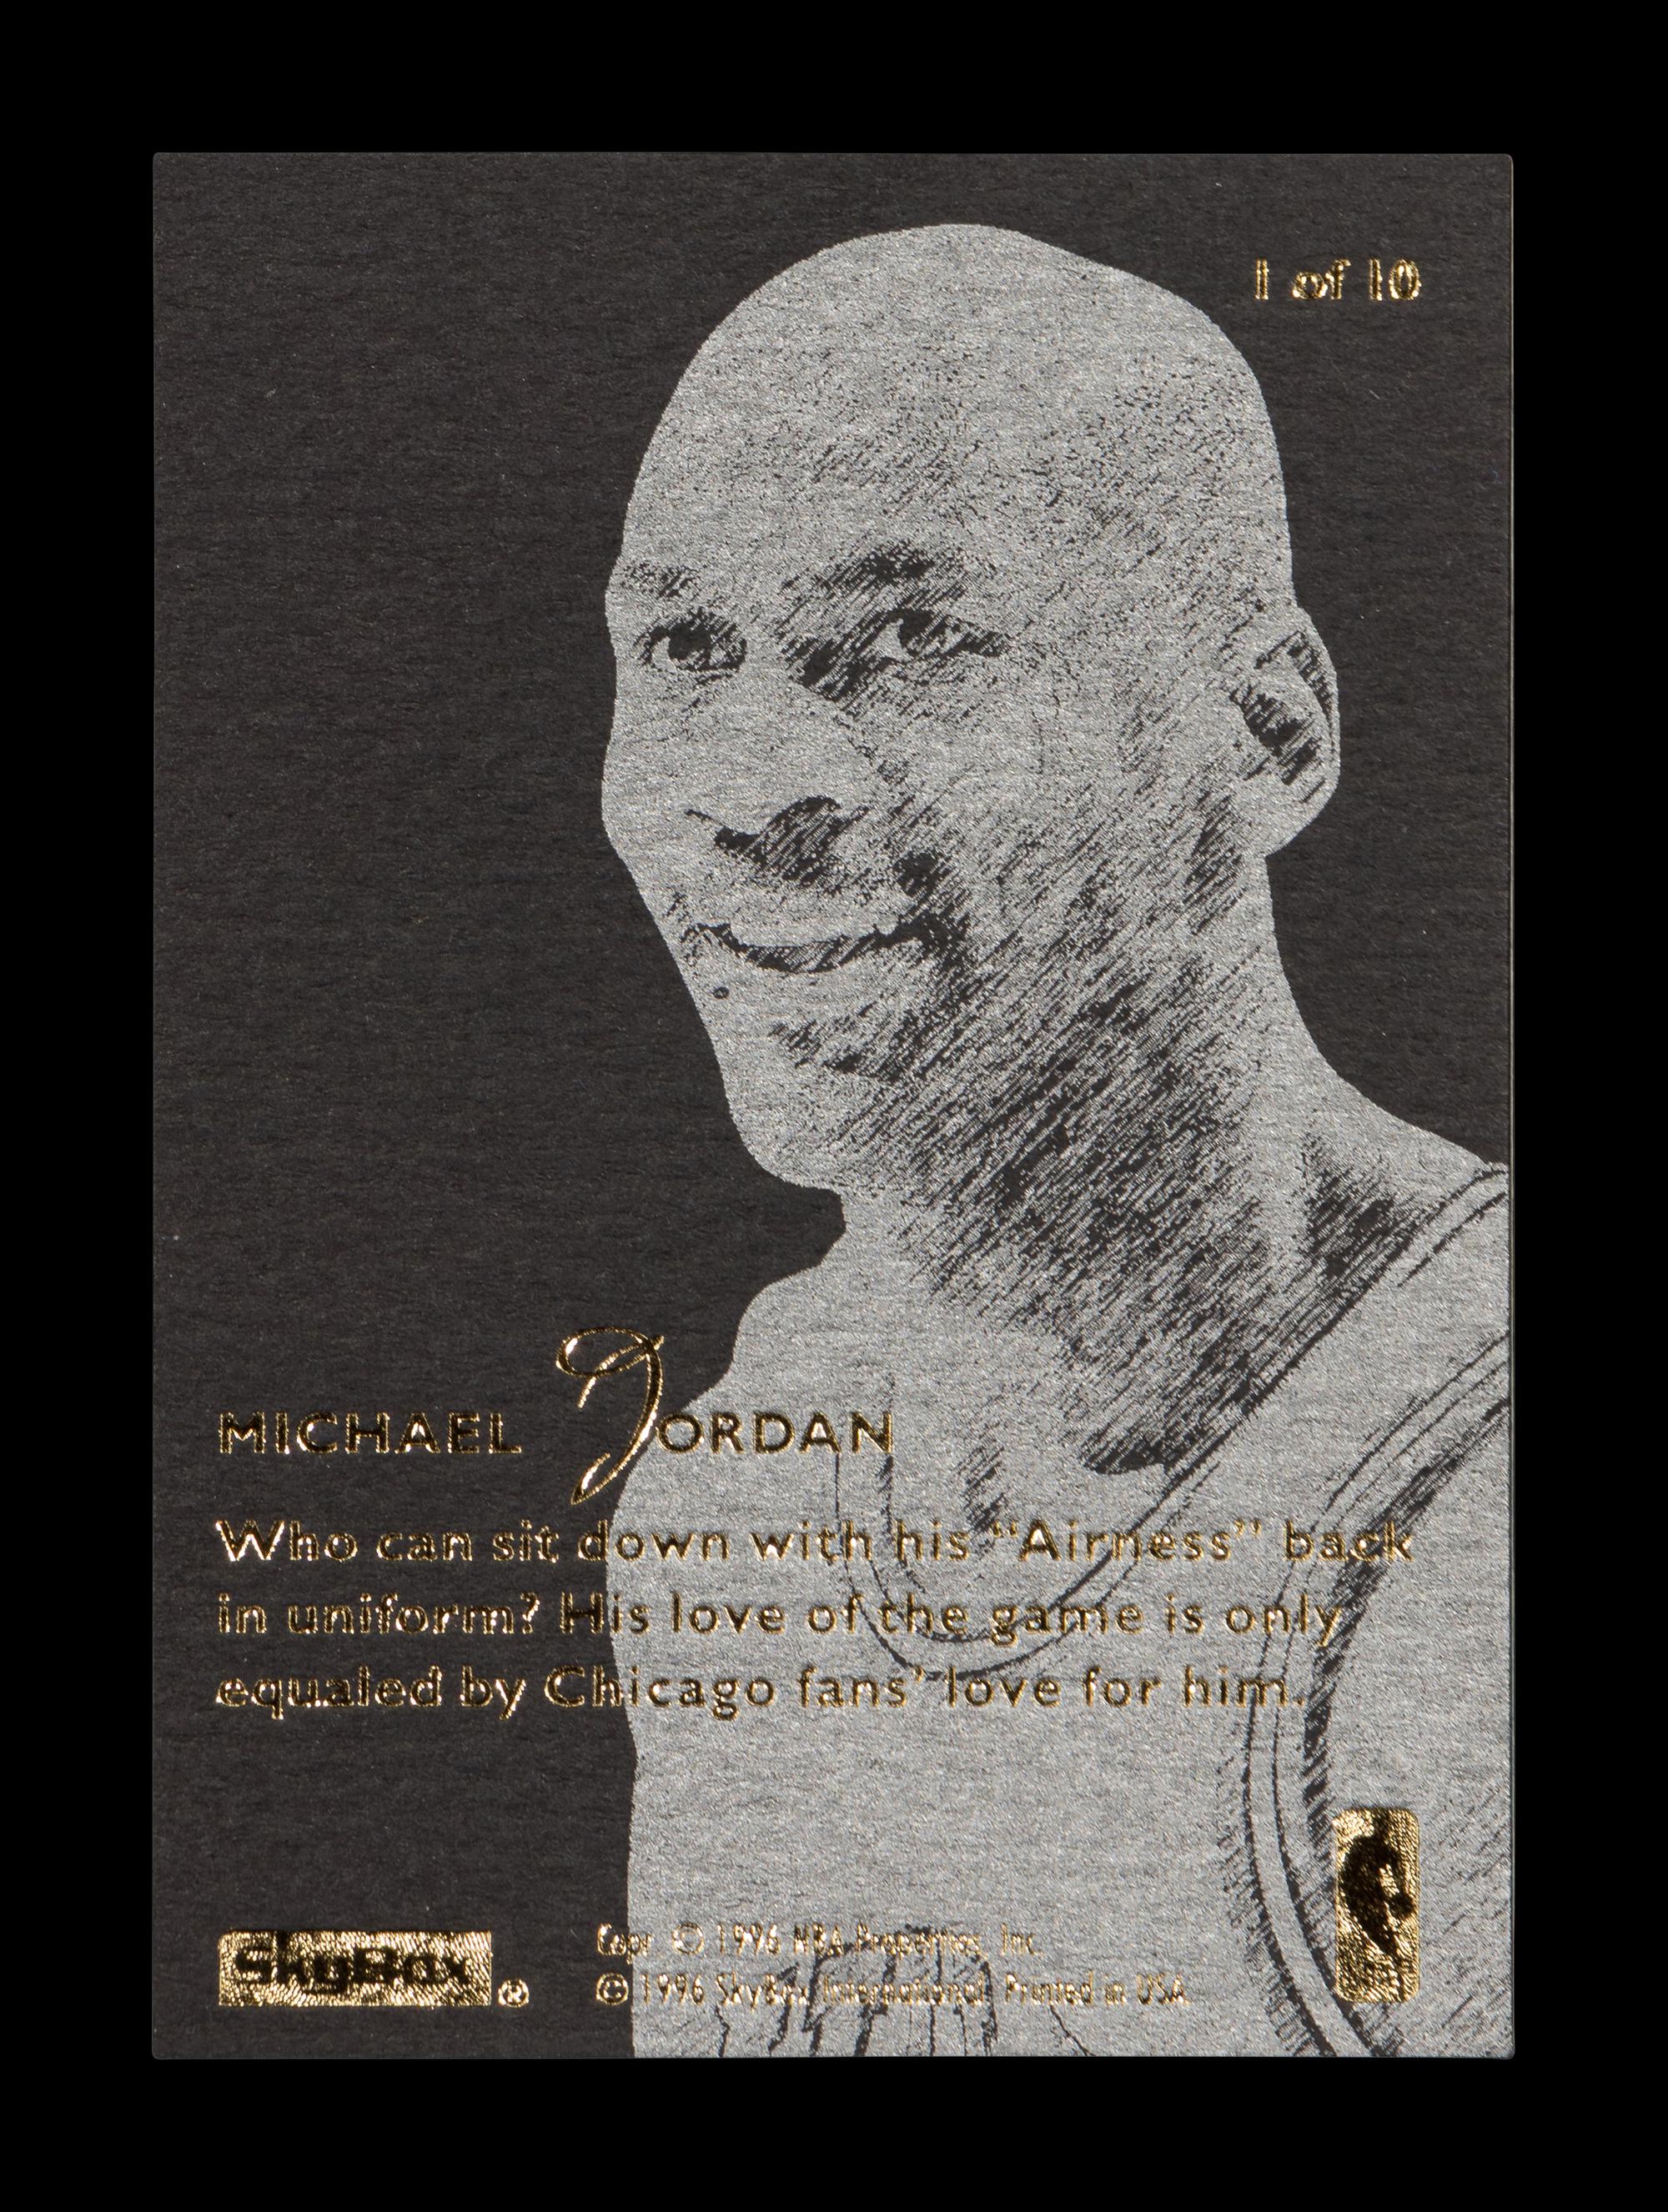 1 of 10
MICHAEL JORDAN
Who can sit down with his “Airness” back
in uniform? His love of the game is only
equaled by Chicago fans’ love for him.
SkyBox ®
Copr. © 1996 NBA Properties, Inc.
© 1996 SkyBox International. Printed in USA.